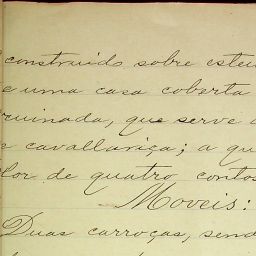 construido sobre esteu
e uma casa coberta
ruinada, que serve d
e cavallariça; a qu
lor de quatro contos
Moveis:
Duas carroças, send